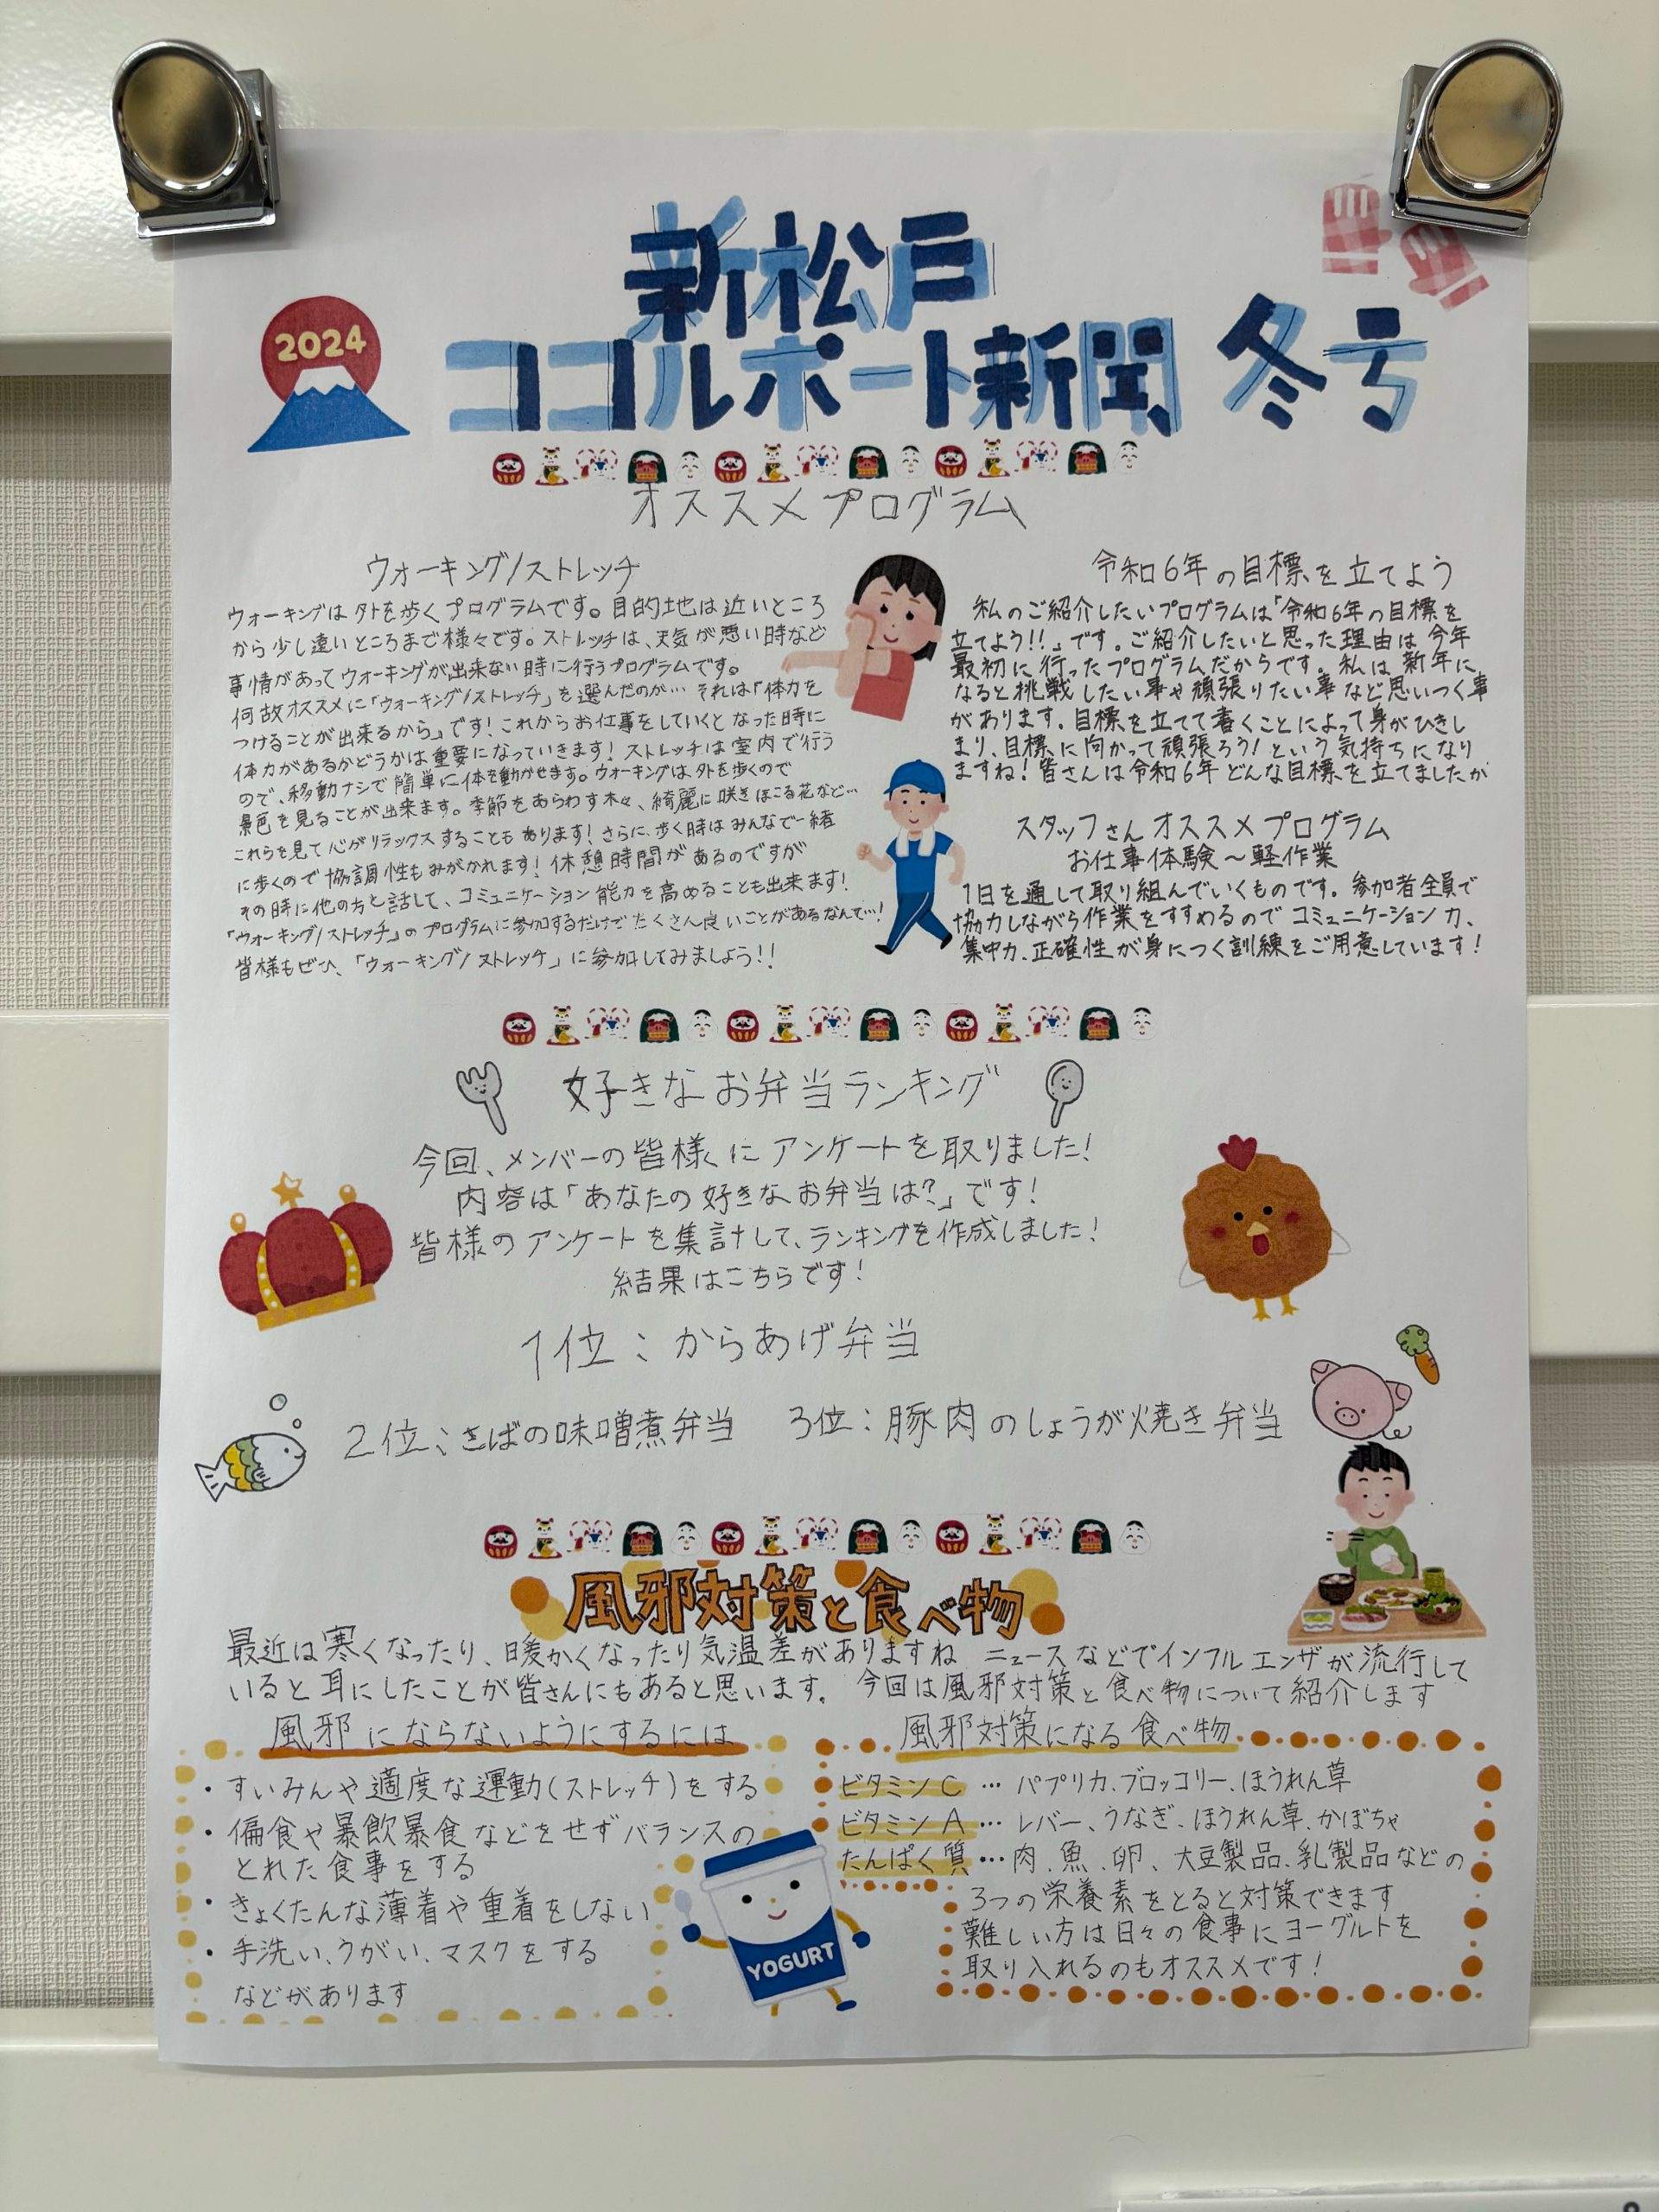 2024
新松戸
ココルポート新聞 冬号
オススメプログラム
ウォーキング/ストレッチ
ウォーキングは外を歩くプログラムです。目的地は近いところ
から少し遠いところまで様々です。ストレッチは、天気が悪い時など
事情があってウォーキングが出来ない時に行うプログラムです。
何故オススメに「ウォーキング/ストレッチ」を選んだのか… それは「体力を
つけることが出来るから」です!これからお仕事をしていくとなった時に
体力があるかどうかは重要になっていきます!ストレッチは室内で行う
ので、移動ナシで簡単に体を動かせます。ウォーキングは、外を歩くので
景色を見ることが出来ます。季節をあらわす木々、綺麗に咲きほこる花など…
これらを見て心がリラックスすることもあります!さらに、歩く時はみんなで一緒
に歩くので協調性もみがかれます!休憩時間があるのですが
その時に他の方と話して、コミュニケーション能力を高めることも出来ます!
「ウォーキング/ストレッチ」のプログラムに参加するだけでたくさん良いことがあるなんて…!
皆様もぜひ、「ウォーキング/ストレッチ」に参加してみましょう!!
令和6年の目標を立てよう
私のご紹介したいプログラムは「令和6年の目標を
立てよう!!」です。ご紹介したいと思った理由は今年
最初に行ったプログラムだからです。私は新年に
なると挑戦したい事や頑張りたい事など思いつく事
があります。目標を立てて書くことによって身がひきし
まり、目標に向かって頑張ろう!という気持ちになり
ますね!皆さんは令和6年どんな目標を立てましたか
スタッフさんオススメプログラム
お仕事体験～軽作業
1日を通して取り組んでいくものです。参加者全員で
協力しながら作業をすすめるのでコミュニケーション力、
集中力、正確性が身につく訓練をご用意しています!
好きなお弁当ランキング
今回、メンバーの皆様にアンケートを取りました!
内容は「あなたの好きなお弁当は?」です!
皆様のアンケートを集計して、ランキングを作成しました!
結果はこちらです!
1位:からあげ弁当
2位:さばの味噌煮弁当 3位:豚肉のしょうが焼き弁当
風邪対策と食べ物
最近は寒くなったり、暖かくなったり気温差がありますね ニュースなどでインフルエンザが流行して
いると耳にしたことが皆さんにもあると思います。今回は風邪対策と食べ物について紹介します
風邪にならないようにするには
・すいみんや適度な運動(ストレッチ)をする
・偏食や暴飲暴食などをせずバランスの
とれた食事をする
・きょくたんな薄着や重着をしない
・手洗い、うがい、マスクをする
などがあります
YOGURT
風邪対策になる食べ物
ビタミンC … パプリカ、ブロッコリー、ほうれん草
ビタミンA … レバー、うなぎ、ほうれん草、かぼちゃ
たんぱく質…肉、魚、卵、大豆製品、乳製品などの
3つの栄養素をとると対策できます
難しい方は日々の食事にヨーグルトを
取り入れるのもオススメです!